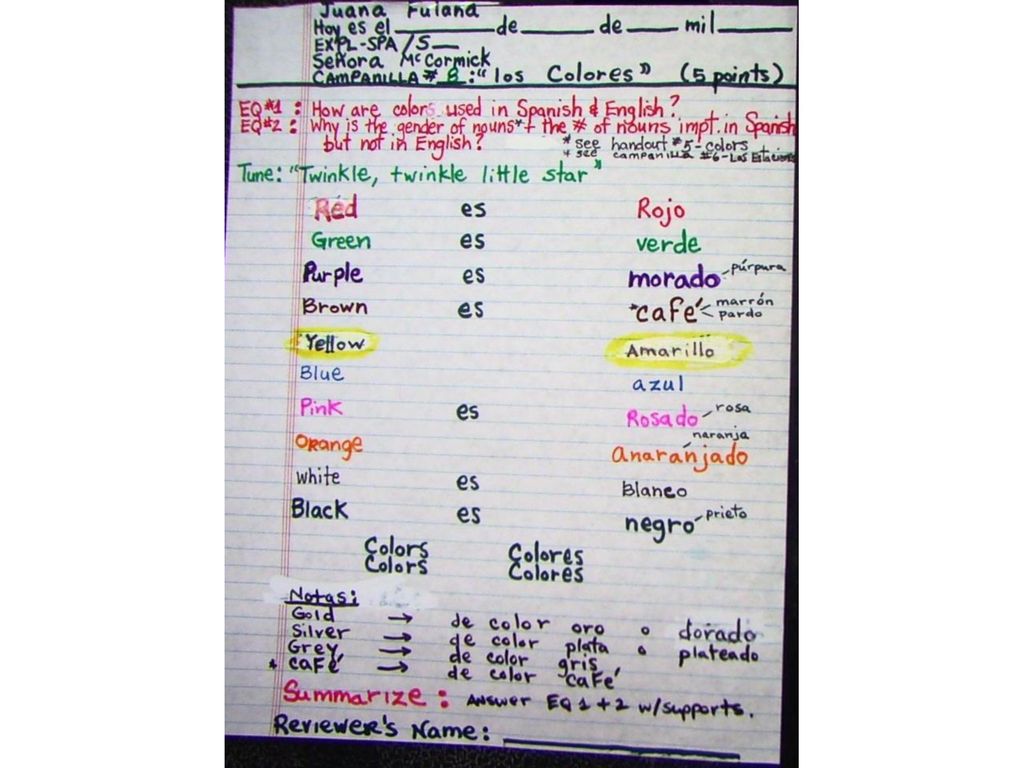 Juana Fulana
Hoy es el ______ de ______ de ____ mil ______
EXPL-SPA /S__
Señora McCormick
CAMPANILLA # 8 : "los Colores" (5 points)
EQ#1 : How are colors used in Spanish & English?
EQ#2 : Why is the gender of nouns* + the # of nouns impt. in Spanish
but not in English? * see handout #5-colors
+ see campanilla #6-Las Estaciones
Tune: "Twinkle, twinkle little star"
Red es Rojo
Green es verde
Purple es morado - púrpura
Brown es *café < marrón
pardo
Yellow Amarillo
Blue azul
Pink es Rosado - rosa
naranja
Orange anaranjado
white es Blanco
Black es negro - prieto
Colors Colores
Colors Colores
Notas:
Gold → de color oro o dorado
Silver → de color plata o plateado
Grey → de color gris
* café → de color café
Summarize : Answer EQ 1 + 2 w/supports.
Reviewer's Name: ______